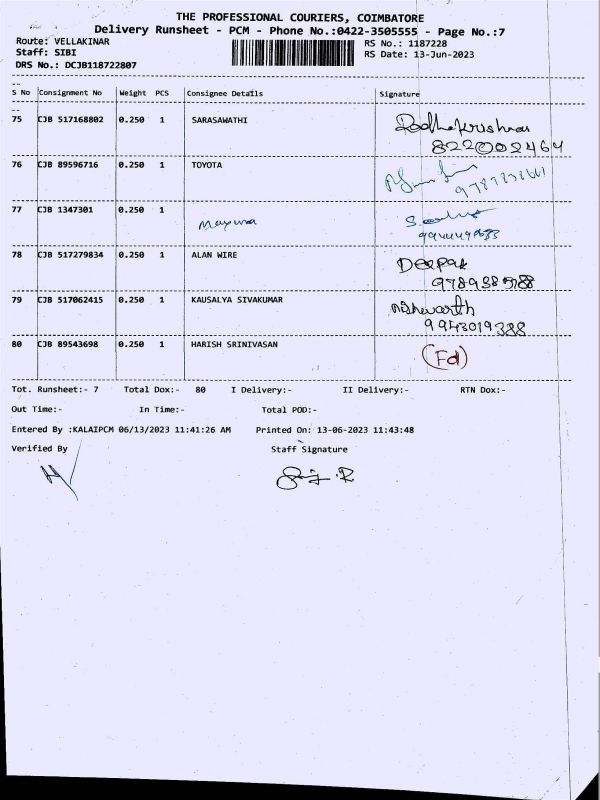 THE PROFESSIONAL COURIERS, COIMBATORE
Delivery Runsheet - PCM - Phone No.:0422-3505555 - Page No.:7
Route: VELLAKINAR RS No.: 1187228
Staff: SIBI RS Date: 13-Jun-2023
DRS No.: DCJB118722807
S No Consignment No Weight PCS Consignee Details Signature
75 CJB 517168802 0.250 1 SARASAWATHI Radhakrishnan
822002464
76 CJB 89596716 0.250 1 TOYOTA
77 CJB 1347301 0.250 1
Mayura
78 CJB 517279834 0.250 1 ALAN WIRE Deepak
79 CJB 517062415 0.250 1 KAUSALYA SIVAKUMAR
9943019388
80 CJB 89543698 0.250 1 HARISH SRINIVASAN (Fd)
Tot. Runsheet:- 7 Total Dox:- 80 I Delivery:- II Delivery:- RTN Dox:-
Out Time:- In Time:- Total POD:-
Entered By :KALAIPCM 06/13/2023 11:41:26 AM Printed On: 13-06-2023 11:43:48
Verified By Staff Signature